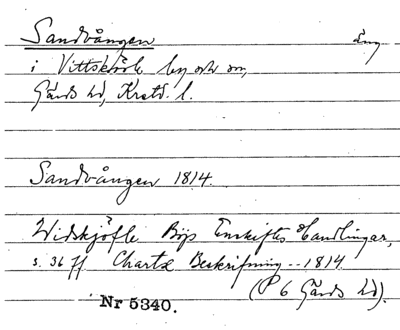 Sandvången äng
i Vittskövle by och sn,
Gärds hd, Krstd. l.
Sandvången 1814.
Widskjöfle Bys Enskiftes Handlingar,
s. 36 ff Charte Beskrifning -- 1814.
(P 6 Gärds hd).
Nr 5340.